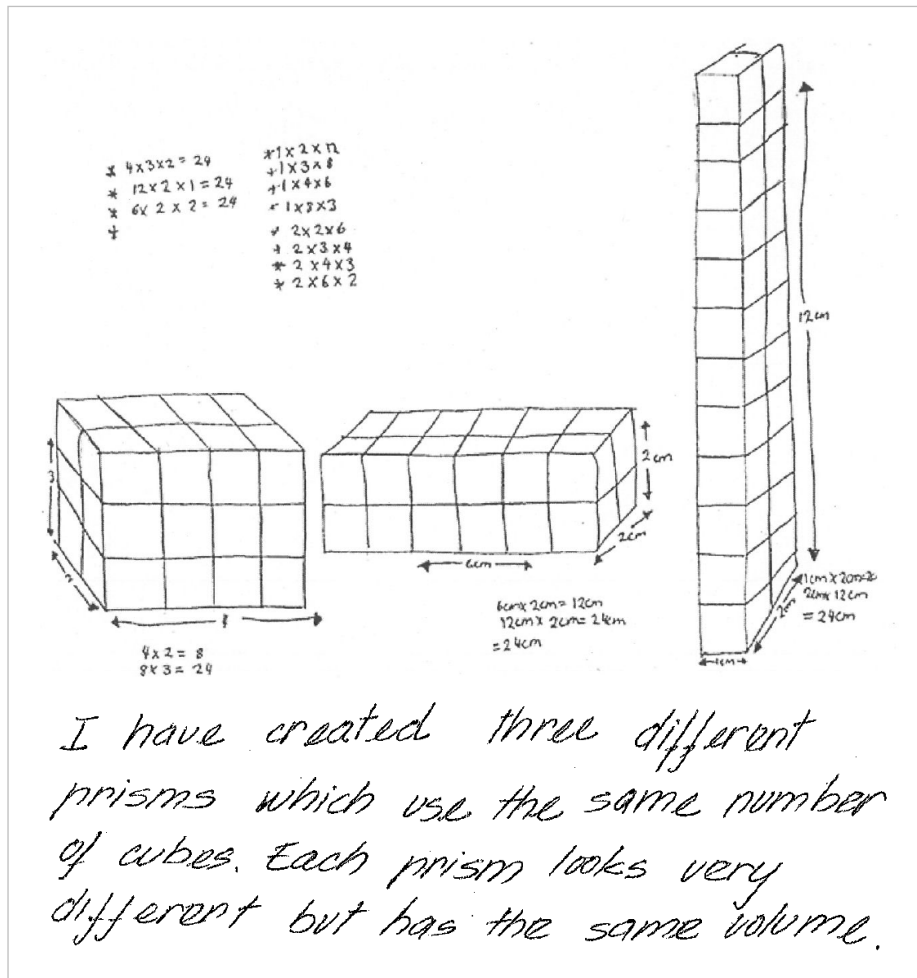 * 4x3x2 = 24
* 12x2x1 = 24
* 6x2x2 = 24
*1x2x12
+1x3x8
+1x4x6
- 1x8x3
+ 2x2x6
+ 2x3x4
* 2x4x3
* 2x6x2
3
4
4x2 = 8
8x3 = 24
2cm
2cm
6cm
6cm x 2cm = 12cm
12cm x 2cm = 24cm
= 24cm
12cm
2cm
1cm
2cm x 12cm
= 24cm
I have created three different
prisms which use the same number
of cubes. Each prism looks very
different but has the same volume.